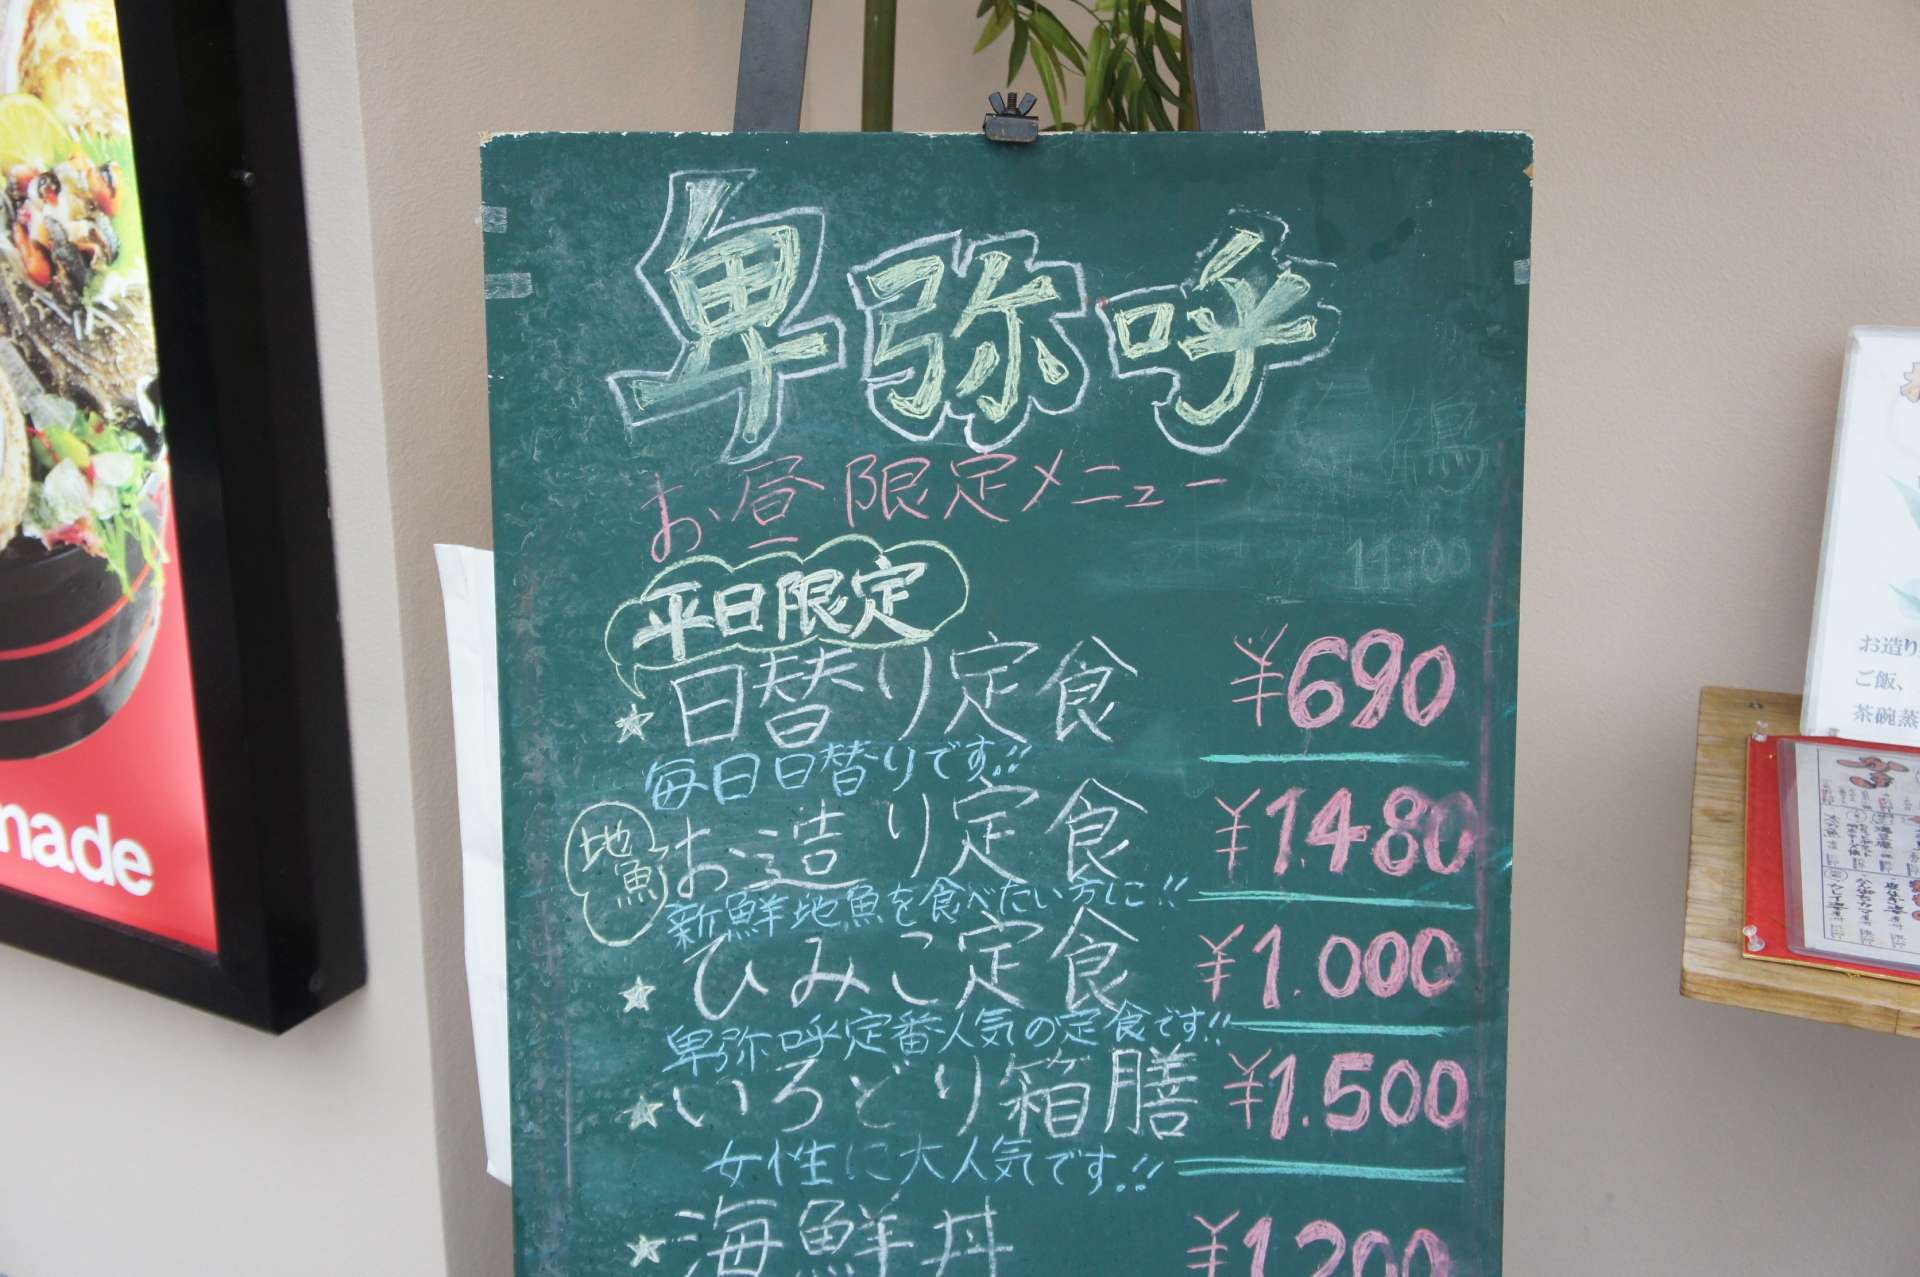 卑弥呼
お昼限定メニュー
平日限定
☆日替り定食 ¥690
毎日日替りです!!
地魚
お造り定食 ¥1.480
新鮮地魚を食べたい方に!!
☆ひみこ定食 ¥1.000
卑弥呼定番人気の定食です!!
☆いろどり箱膳 ¥1.500
女性に大人気です!!
☆海鮮丼 ¥1.200
made
お造り
ご飯、
茶碗蒸